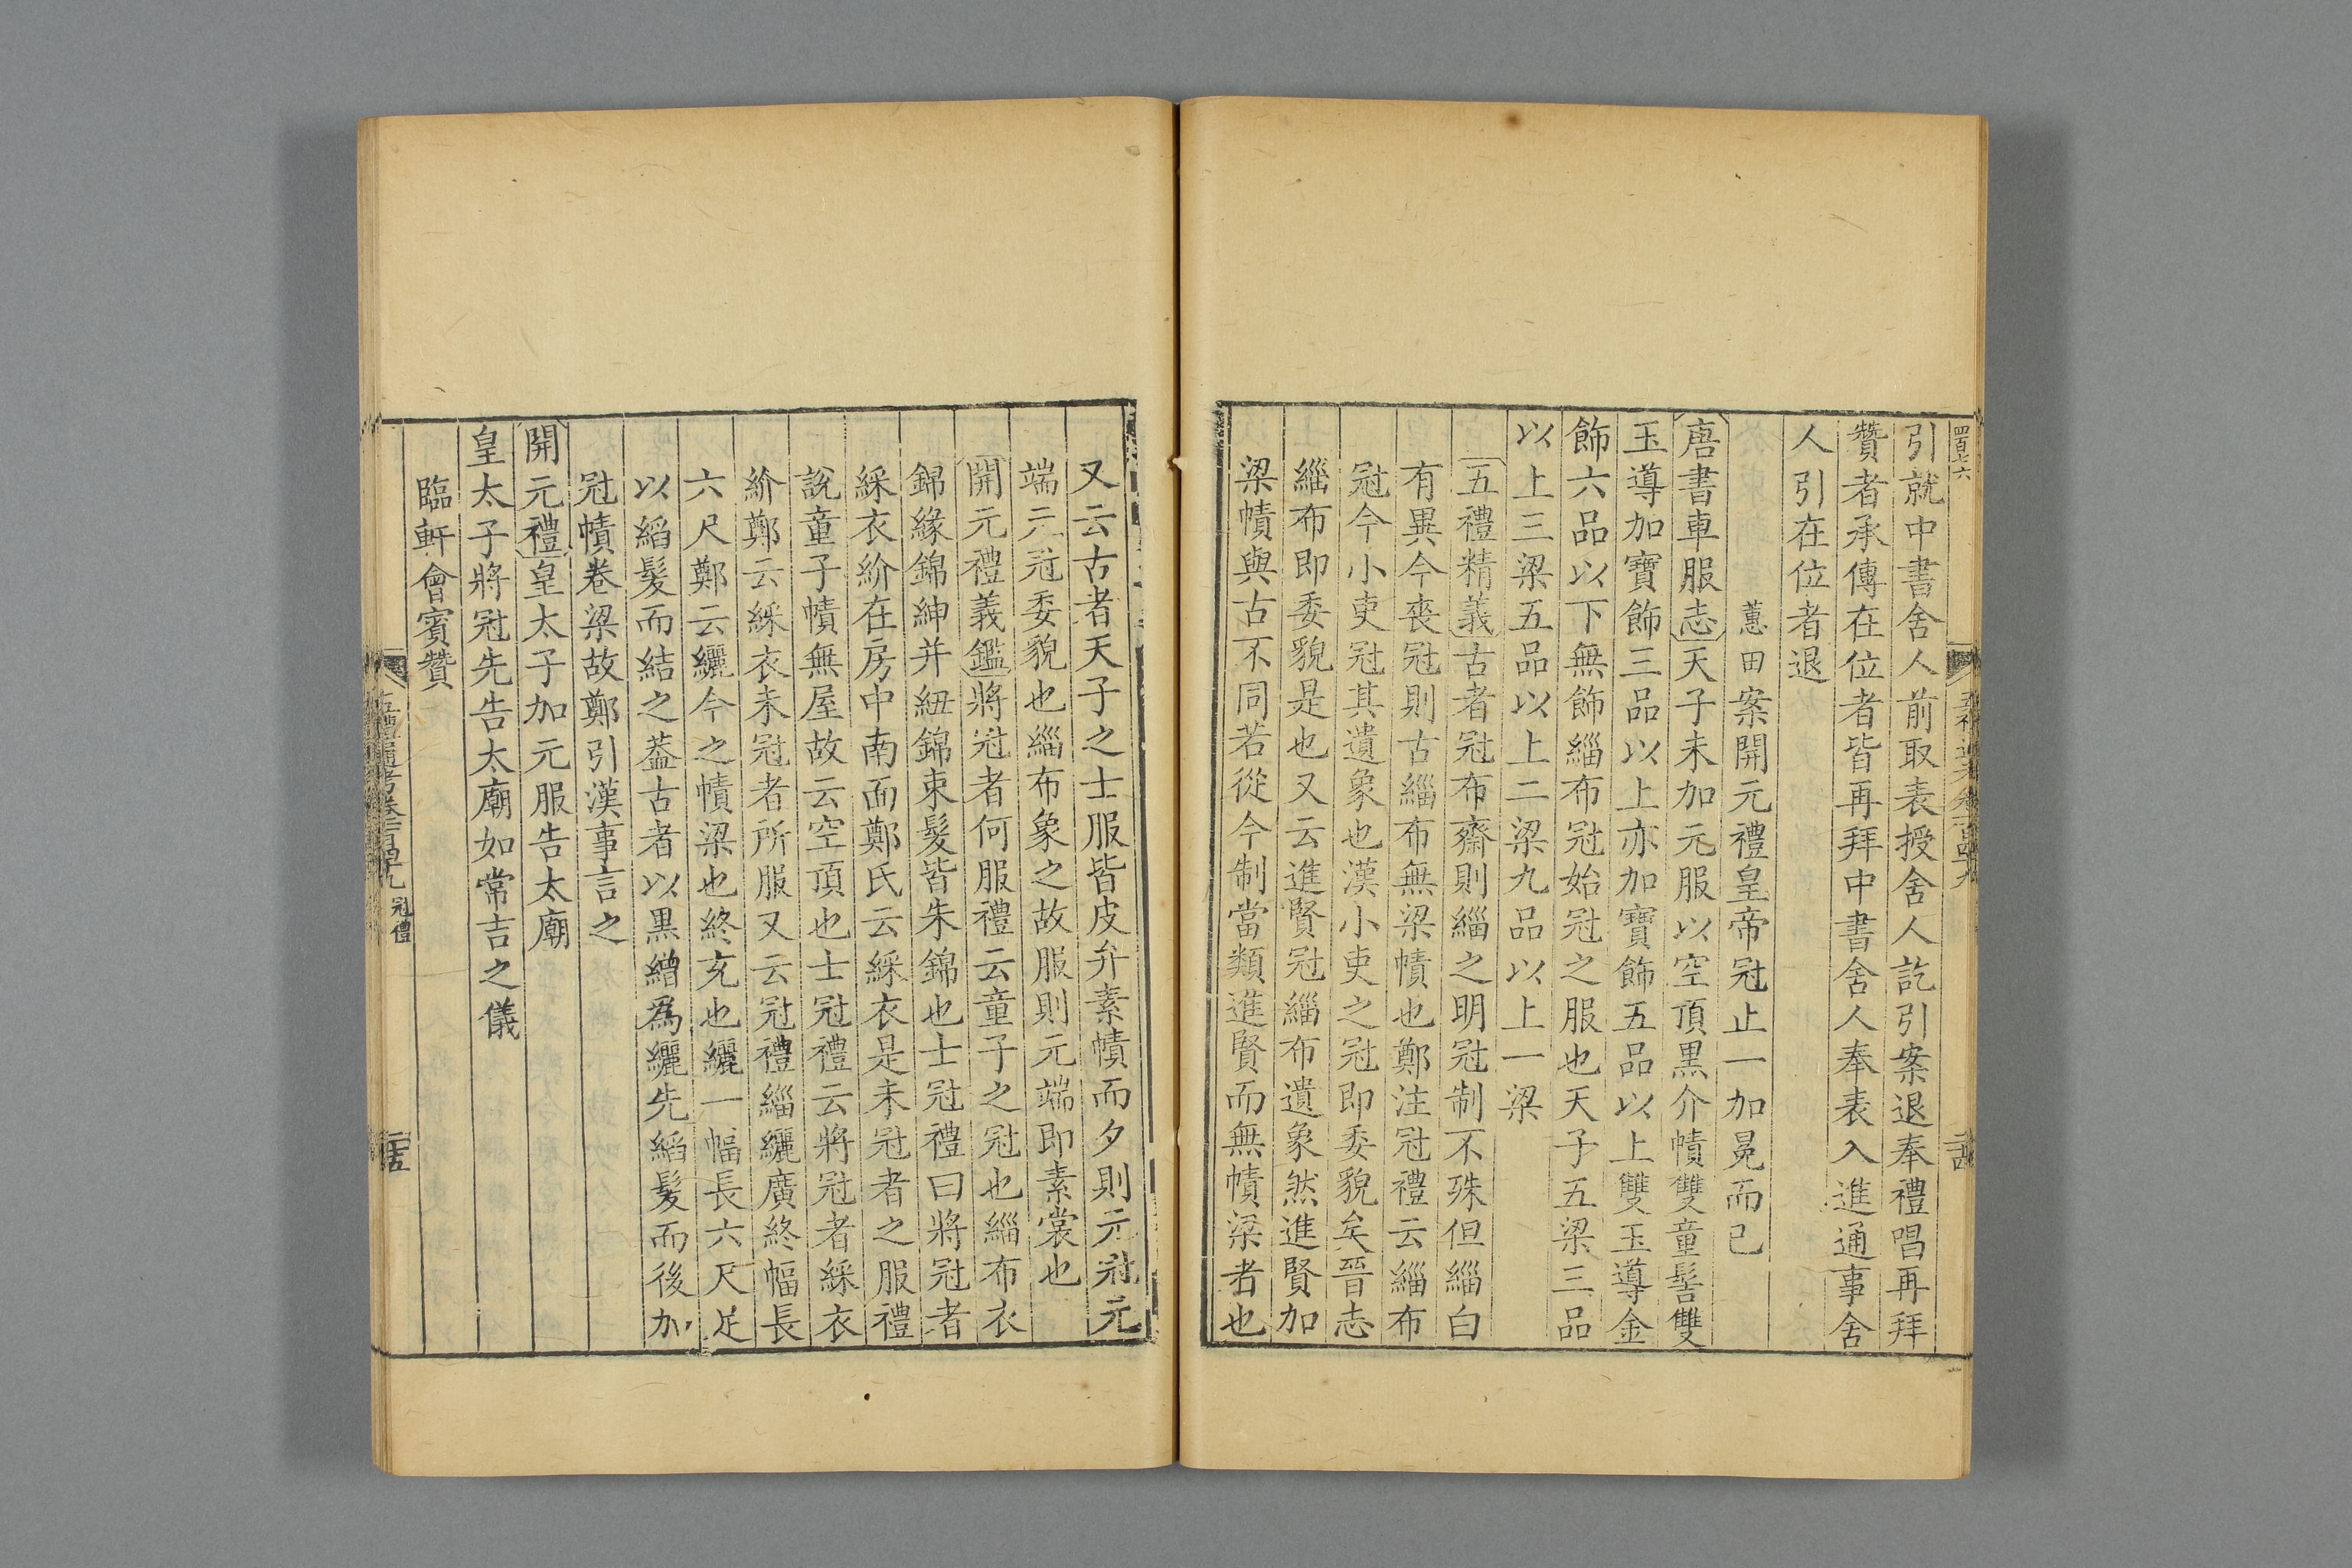 四百七六
引就中書舍人前取表授舍人訖引案退奉禮唱再拜
贊者承傳在位者皆再拜中書舍人奉表入進通事舍
人引在位者退
蕙田案開元禮皇帝冠止一加冕而已
唐書車服志天子未加元服以空頂黑介幘雙童髻雙
玉導加寶飾三品以上亦加寶飾五品以上雙玉導金
飾六品以下無飾緇布冠始冠之服也天子五梁三品
以上三梁五品以上二梁九品以上一梁
五禮精義古者冠布齋則緇之明冠制不殊但緇白
有異今喪冠則古緇布無梁幘也鄭注冠禮云緇布
冠今小吏冠其遺象也漢小吏之冠即委貌矣晉志
緇布即委貌是也又云進賢冠緇布遺象然進賢加
梁幘與古不同若從今制當類進賢而無幘梁者也
又云古者天子之士服皆皮弁素幘而夕則元冠元
端元冠委貌也緇布象之故服則元端即素裳也
開元禮義鑑將冠者何服禮云童子之冠也緇布衣
錦緣錦紳并紐錦束髮皆朱錦也士冠禮曰將冠者
綵衣紒在房中南面鄭氏云綵衣是未冠者之服禮
說童子幘無屋故云空頂也士冠禮云將冠者綵衣
紒鄭云綵衣未冠者所服又云冠禮緇纚廣終幅長
六尺鄭云纚今之幘梁也終充也纚一幅長六尺足
以縚髮而結之葢古者以黑繒爲纚先縚髮而後加
冠幘卷梁故鄭引漢事言之
開元禮皇太子加元服告太廟
皇太子將冠先告太廟如常吉之儀
臨軒會賓贊
五禮通考卷一百四十九 冠禮